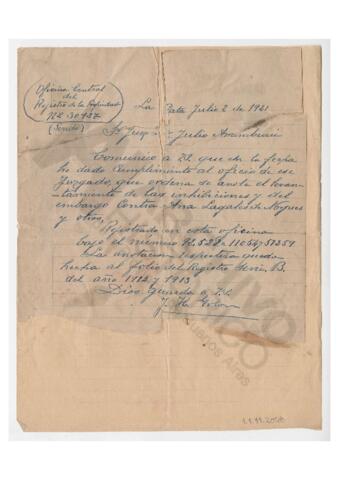 Oficina Central
del
Registro de la Propiedad
Nº 30937
(Fondo)
La Plata Julio 2 de 1921
Sr Juez Dr Julio Aramburu
Comunico a Vd que en la fecha
he dado cumplimiento al oficio de ese
Juzgado, que ordena se anote el levan-
tamiento de las inhibiciones y del
embargo contra Ana Nogues
y otros,
Registrado en esta oficina
bajo el numero
La anotacion respectiva queda
hecha al folio del Registro Serie B.
del año 1912 y 1913
Dios Guarde a Vd.
Buenos Aires